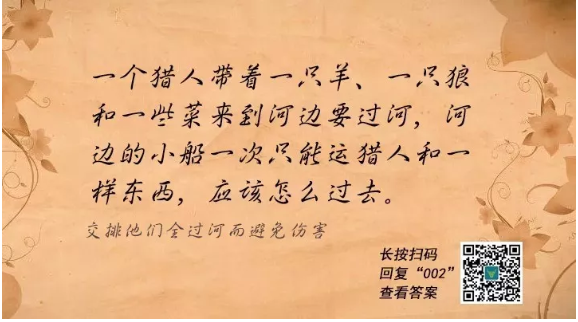 一个猎人带着一只羊、一只狼
和一些菜来到河边要过河，河
边的小船一次只能运猎人和一
样东西，应该怎么过去。
交排他们全过河而避免伤害
长按扫码
回复“002”
查看答案